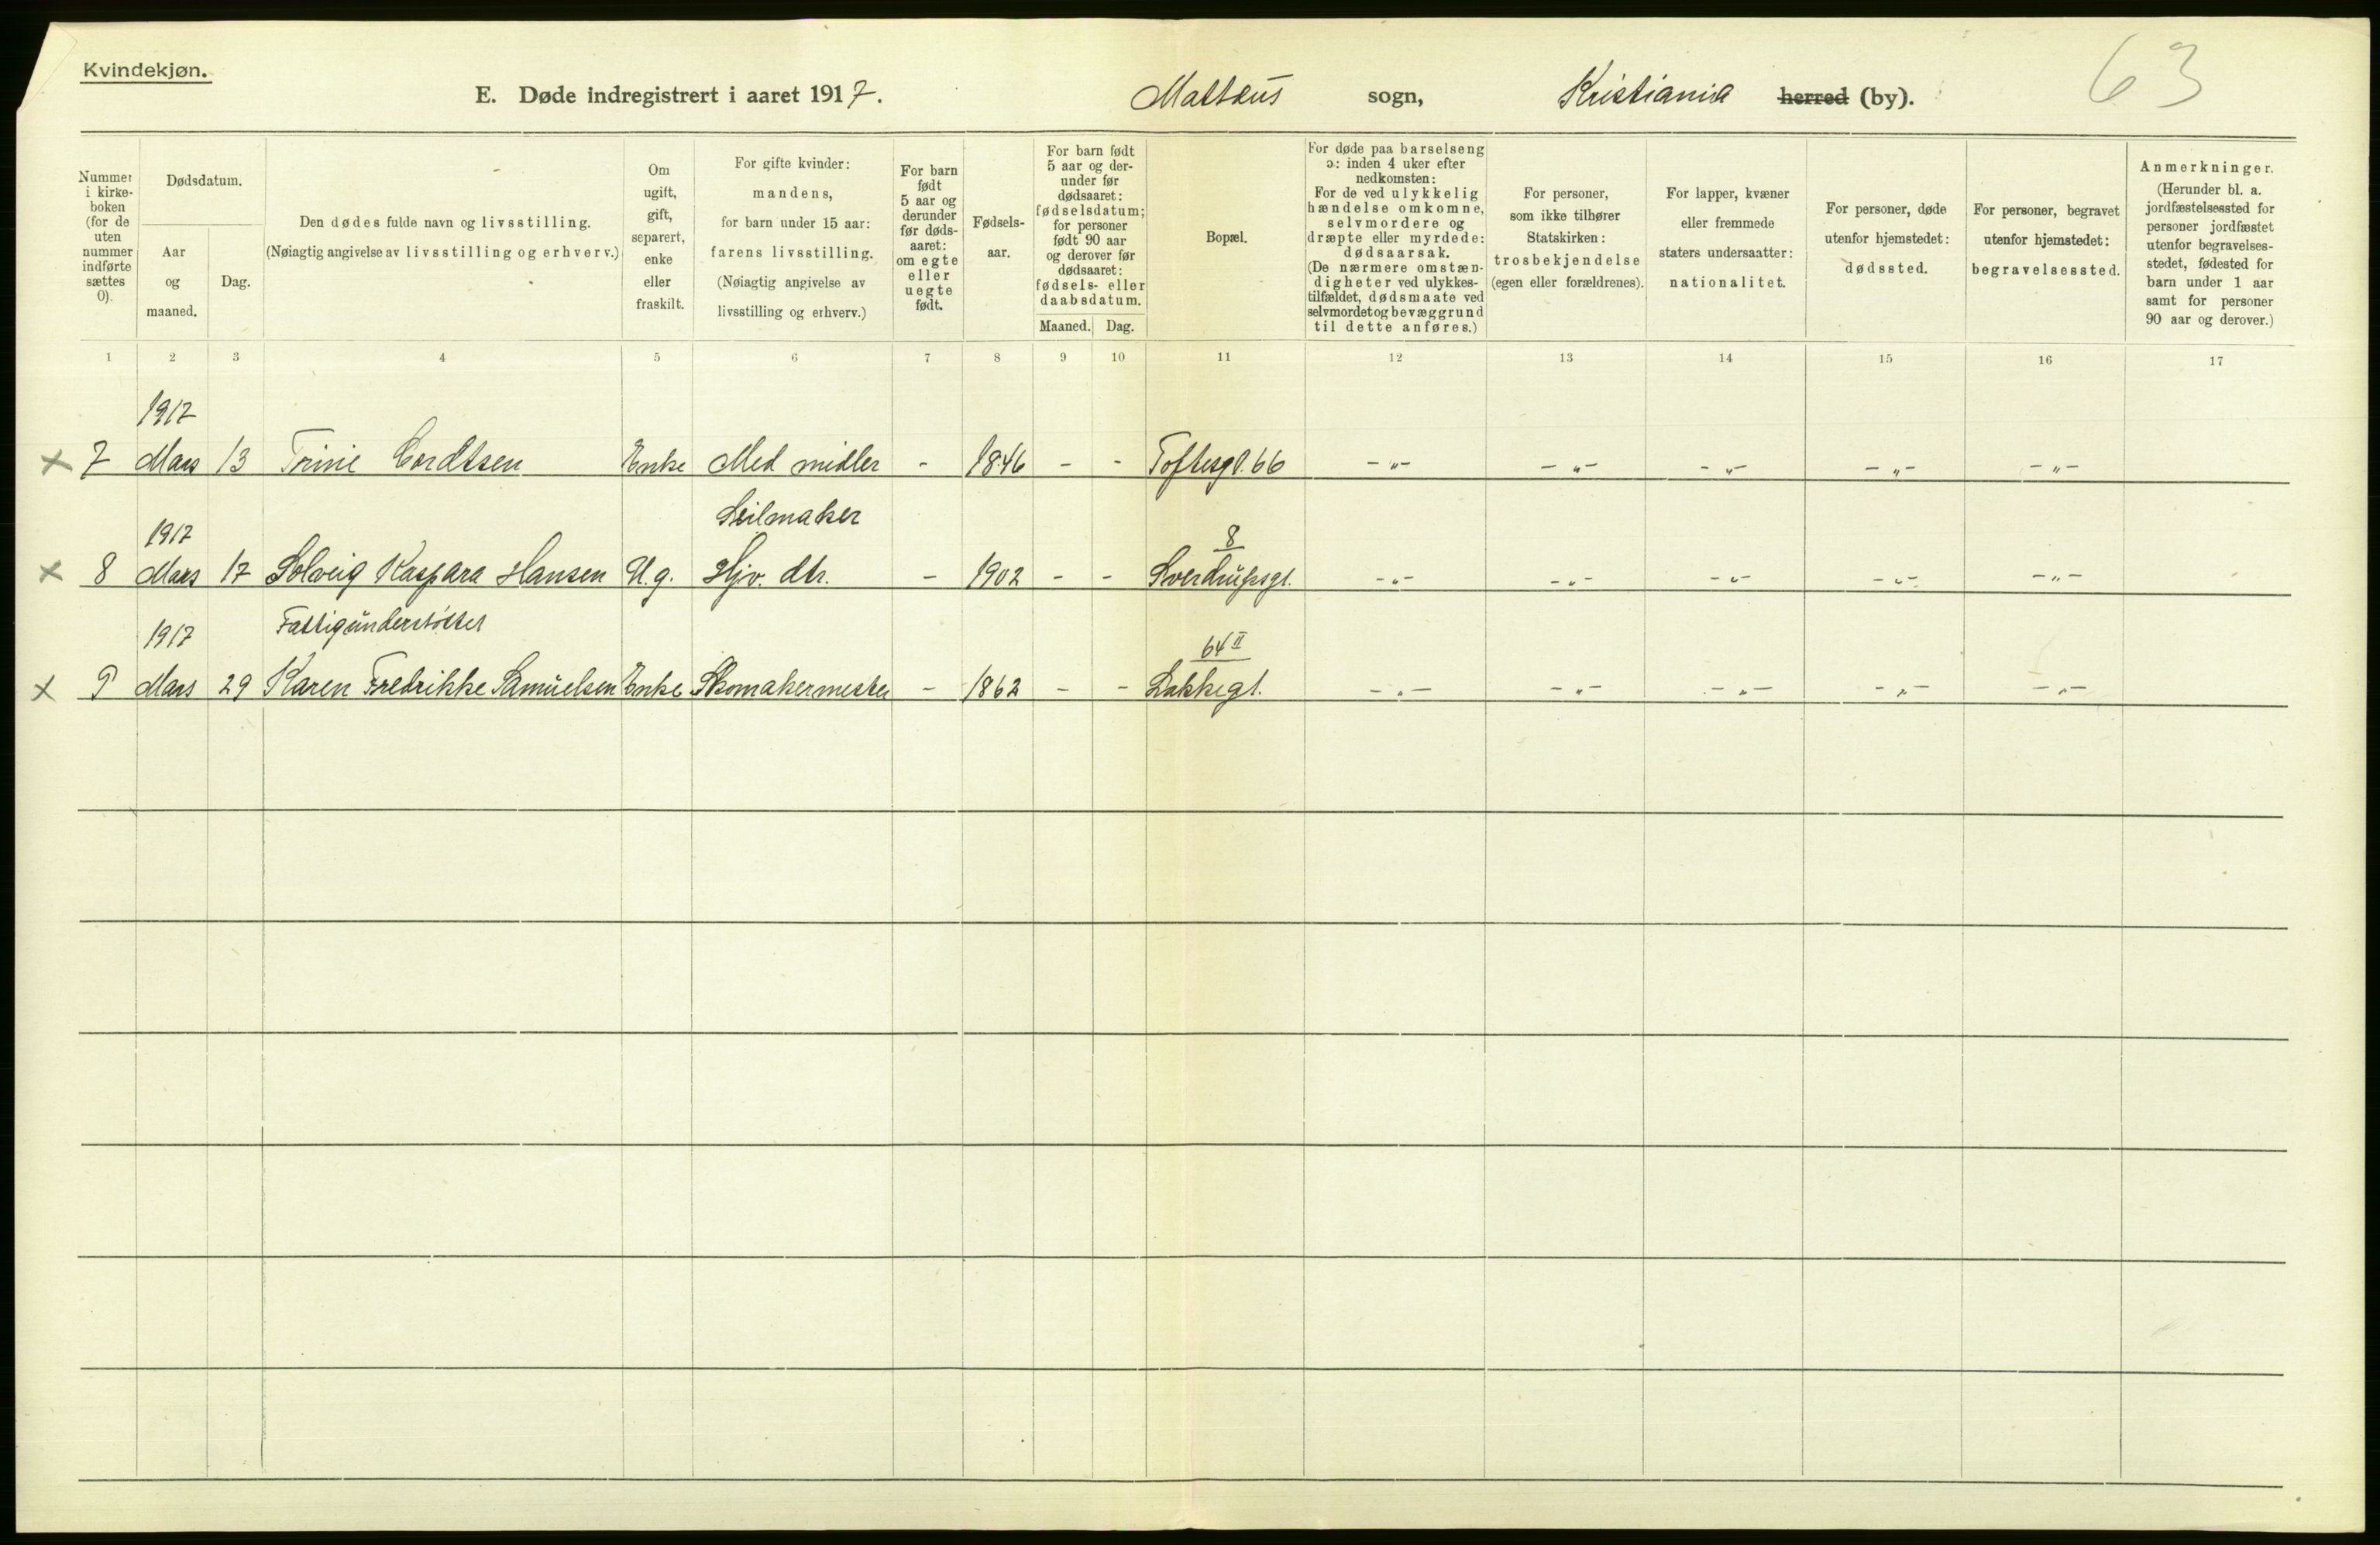 Kvindekjøn.
E. Døde indregistrert i aaret 1917. Mattæus sogn, Kristiania herred (by). 63
Nummer i kirkeboken (for de uten nummer indførte sættes 0).
Dødsdatum.
Aar og maaned.
Dag.
Den dødes fulde navn og livsstilling.
(Nøiagtig angivelse av livsstilling og erhverv.)
Om ugift, gift, separert, enke eller fraskilt.
For gifte kvinder: mandens, for barn under 15 aar: farens livsstilling.
(Nøiagtig angivelse av livsstilling og erhverv.)
For barn født 5 aar og derunder før dødsaaret: om egte eller uegte født.
Fødselsaar.
For barn født 5 aar og derunder før dødsaaret: fødselsdatum; for personer født 90 aar og derover før dødsaaret: fødsels- eller daabsdatum.
Maaned. Dag.
Bopæl.
For døde paa barselseng ɔ: inden 4 uker efter nedkomsten:
For de ved ulykkelig hændelse omkomne, selvmordere og dræpte eller myrdede: dødsaarsak.
(De nærmere omstændigheter ved ulykkestilfældet, dødsmaate ved selvmordet og bevæggrund til dette anføres.)
For personer, som ikke tilhører Statskirken: trosbekjendelse (egen eller forældrenes).
For lapper, kvæner eller fremmede staters undersaatter: nationalitet.
For personer, døde utenfor hjemstedet: dødssted.
For personer, begravet utenfor hjemstedet: begravelsessted.
Anmerkninger.
(Herunder bl. a. jordfæstelsessted for personer jordfæstet utenfor begravelsesstedet, fødested for barn under 1 aar samt for personer 90 aar og derover.)
1 2 3 4 5 6 7 8 9 10 11 12 13 14 15 16 17
1917
x 7 Mars 13 Trine Cordtsen Enke Med midler - 1846 - - Toftesgt. 66 -"- -"- -"- -"- -"-
1917 Seilmaker 8
x 8 Mars 17 Solveig Kaspara Hansen U.g. Hjv. dtr. - 1902 - - Sverdrupsgt. -"- -"- -"- -"- -"-
1917 Fattigunderstöttet 64 II
x 9 Mars 29 Karen Fredrikke Samuelsen Enke Skomakermester - 1862 - - Lakkegt. -"- -"- -"- -"- -"-